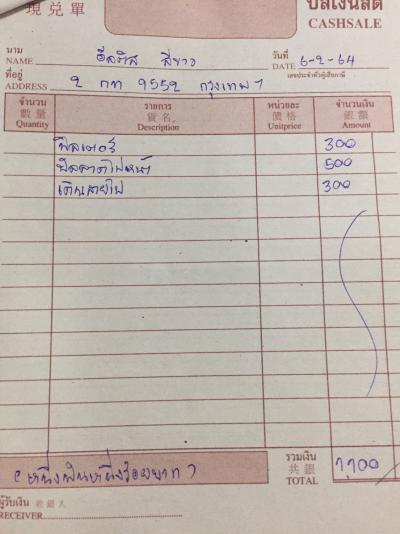 現兌單
บิลเงินสด
CASHSALE
นาม
NAME อีลติส สีขาว
วันที่
DATE 6-2-64
ที่อยู่
ADDRESS 2 กท 9552 กรุงเทพฯ
เลขประจำตัวผู้เสียภาษี
จำนวน รายการ หน่วยละ จำนวนเงิน
數量 貨名 價格 銀額
Quantity Description Unitprice Amount
ฟิลเตอร์ 300
500
เดินสายไฟ 300
(หนึ่งพันหนึ่งร้อยบาท)
รวมเงิน
共銀
TOTAL 1,100
ผู้รับเงิน 收銀人
RECEIVER